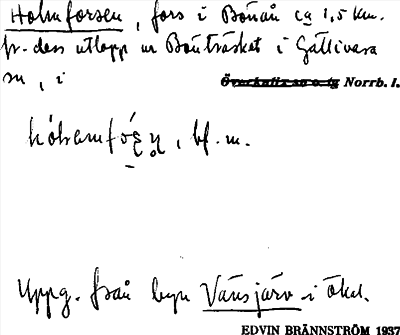 Holmforsen, fors i Bönån ca 1,5 km.
fr. dess utlopp ur Bönträsket i Gällivare
sn, i Överkalix sn o. tg Norrb. l.
bf. m.
Uppg. från byn Vänsjärv i Ökal.
EDVIN BRÄNNSTRÖM 1937